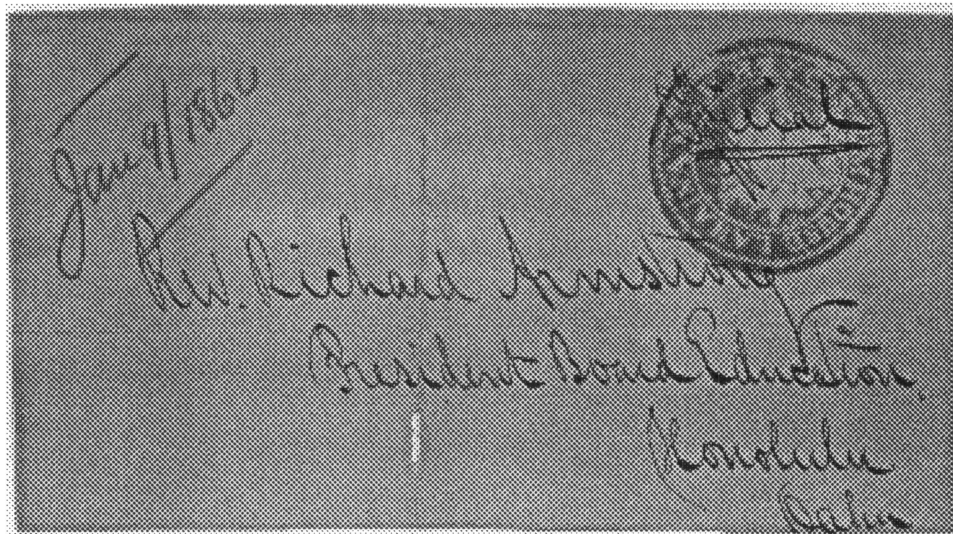 Jan 9/1860
Rev. Richard Armstrong
President Board Education,
Honolulu
Oahu